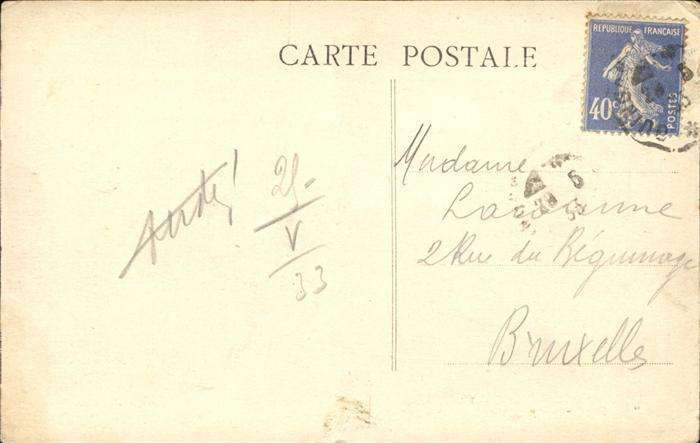 CARTE POSTALE
REPUBLIQUE FRANÇAISE
40c
POSTES
25
V
33
Madame
2 Rue du Béguinage
Bruxelles